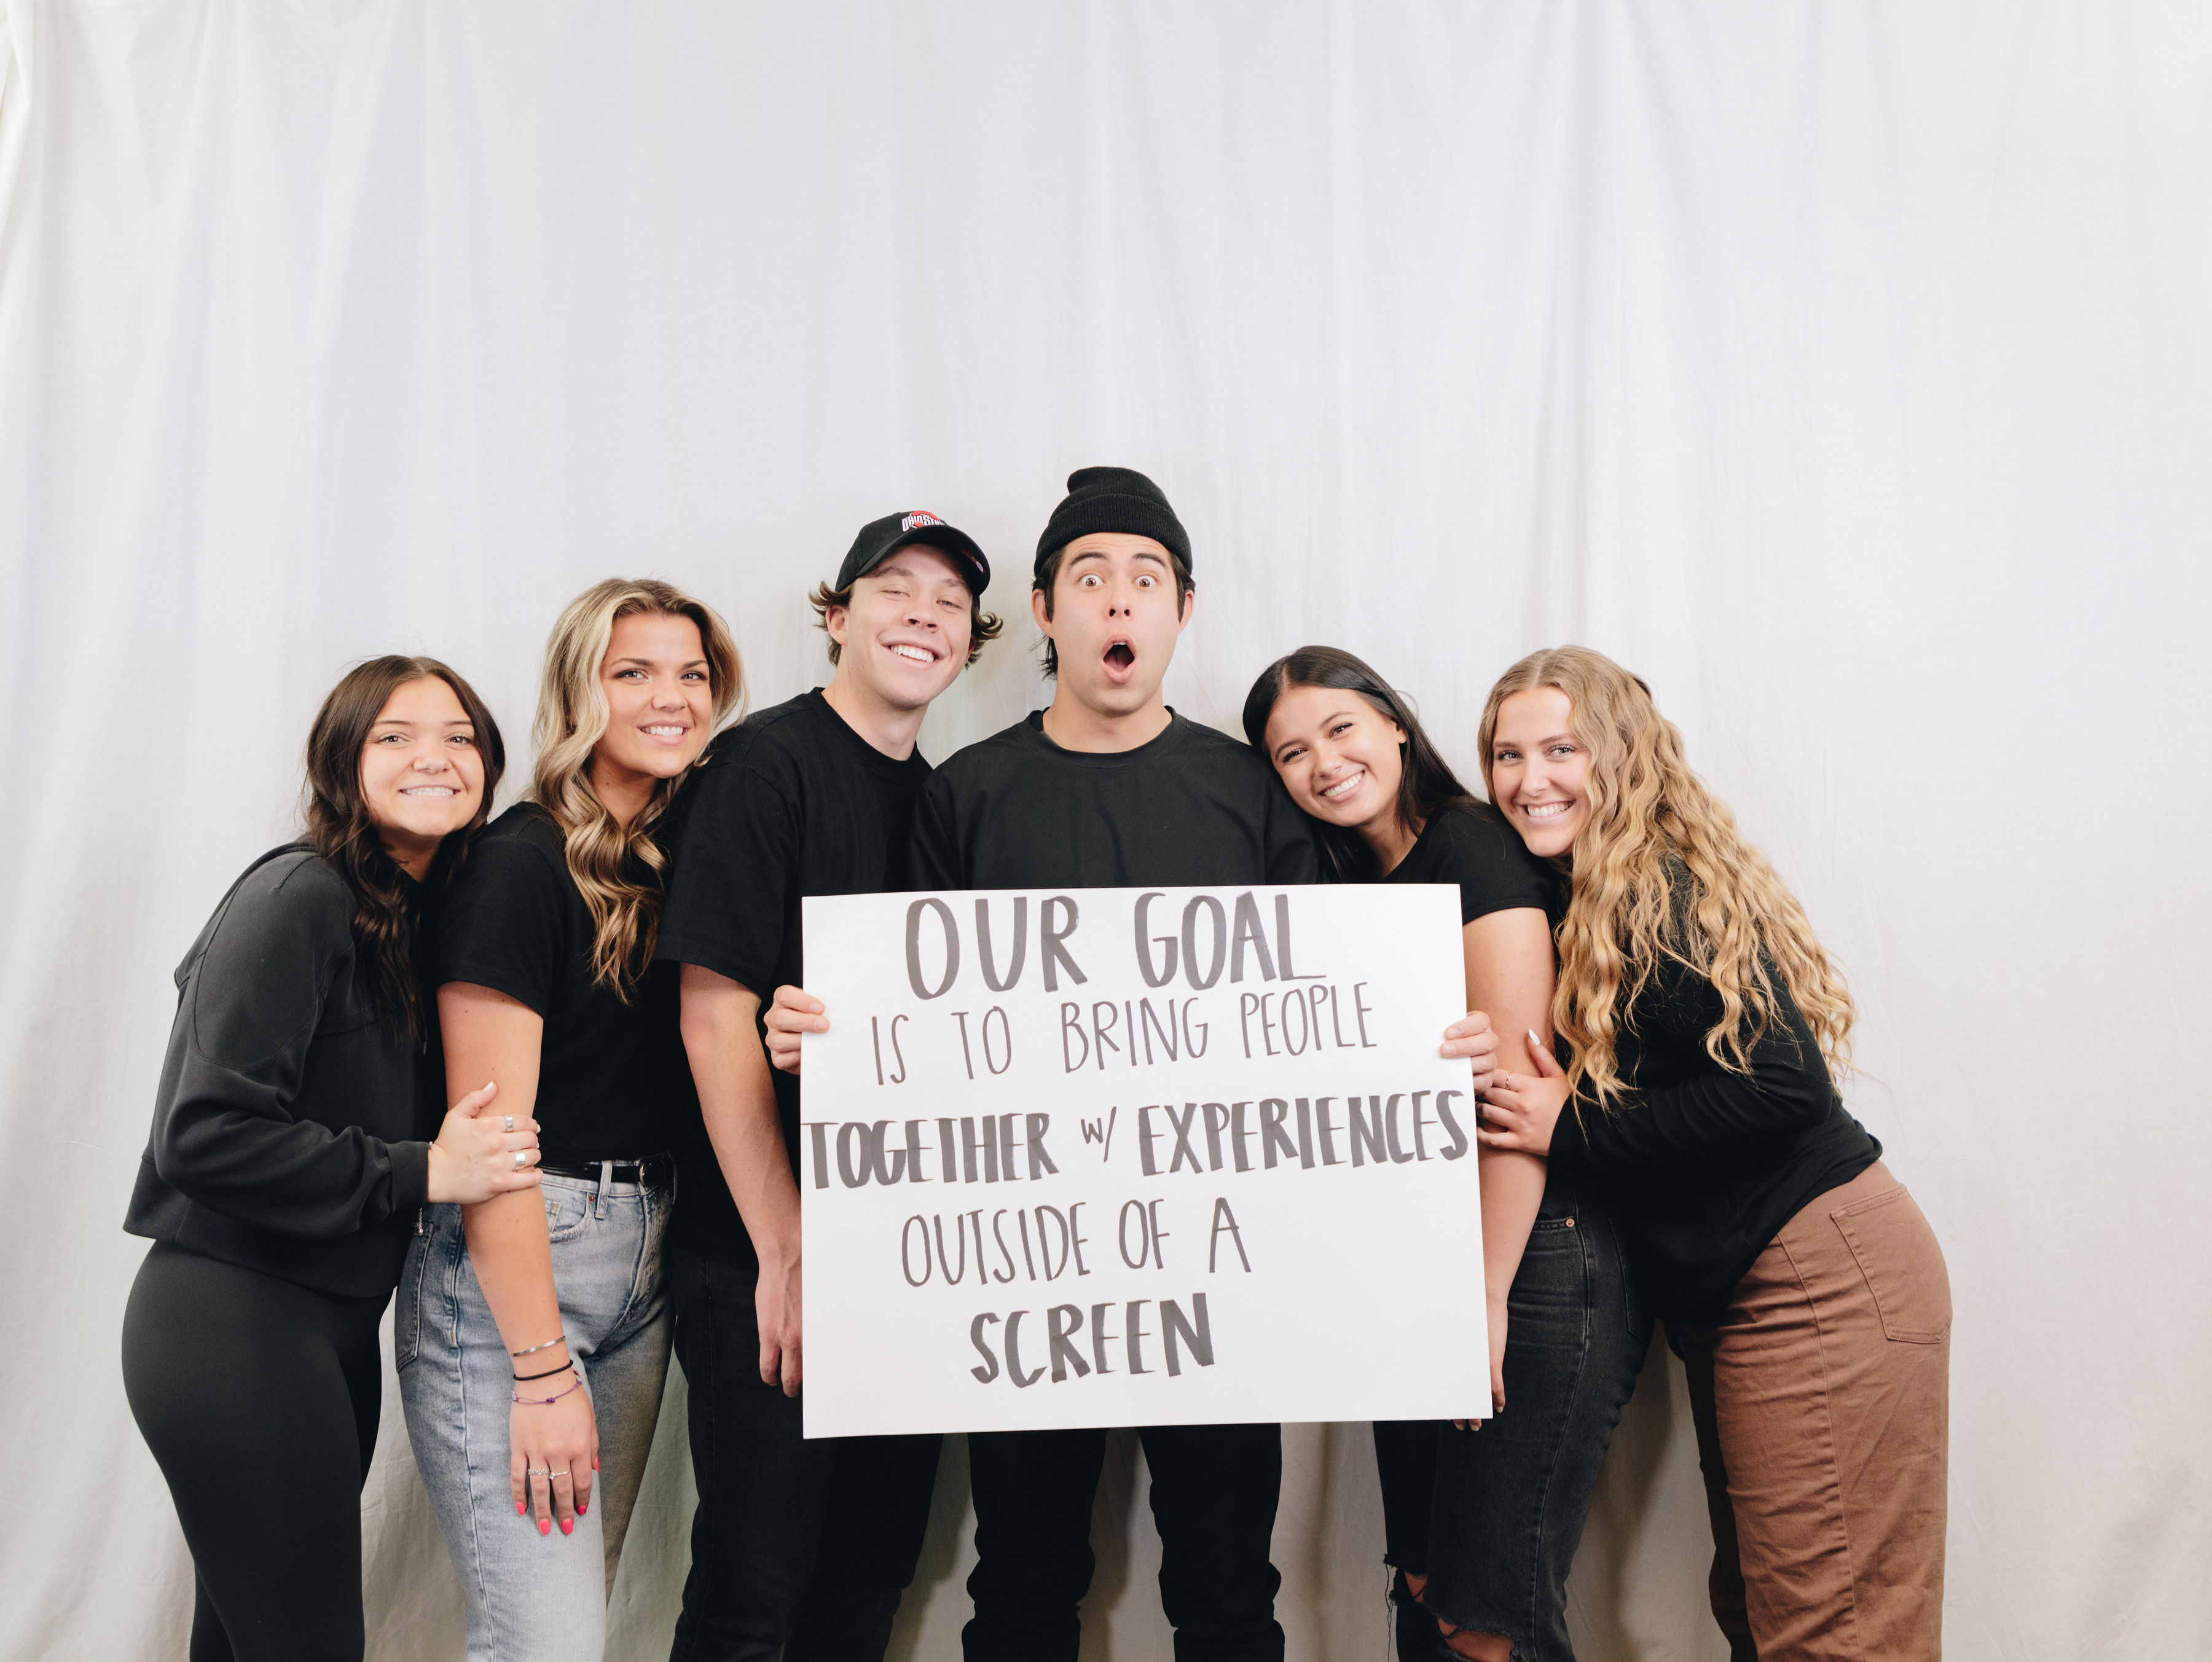 OHIO STATE
OUR GOAL
IS TO BRING PEOPLE
TOGETHER W/ EXPERIENCES
OUTSIDE OF A
SCREEN